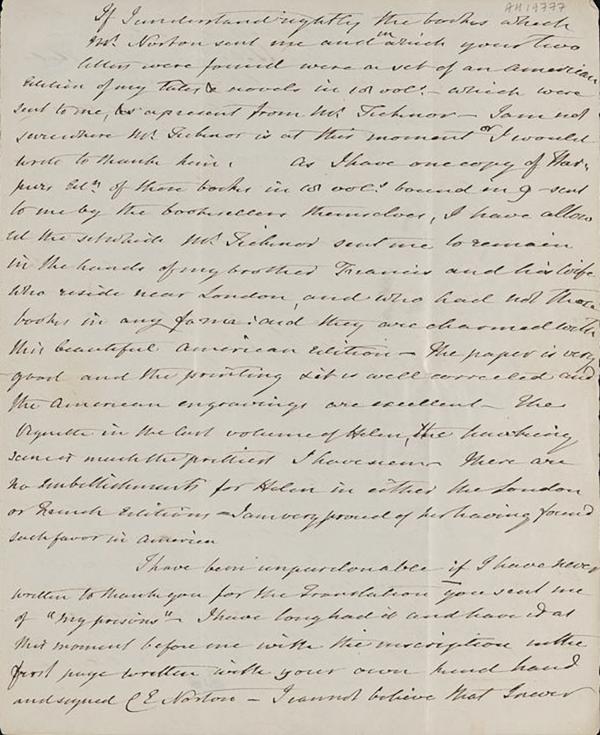 AH19777
If I understand rightly the books which
Mr. Norton sent me and in which your two
letters were found were a set of an American
Edition of my tales & novels in 18 vols. - which were
sent to me, as a present from Mr. Ticknor - I am not
sure where Mr. Ticknor is at this moment or I would
write to thank him. As I have one copy of Har,
pers Edn. of these books in 18 vols. bound in 9 - sent
to me by the booksellers themselves, I have allow
ed the set which Mr. Ticknor sent me to remain
in the hands of my brother Francis and his wife
who reside near London and who had not these
books in any form: and they are charmed with
this beautiful American Edition - The paper is very
good and the printing & it is well corrected and
the American engravings are excellent - The
Vignette in the last volume of Helen, the hawking
scene is much the prettiest I have seen. There are
no Embellishments for Helen in either the London
or French Editions - I am very proud of her having found
such favor in America
I have been unpardonable if I have never
written to thank you for the Translation you sent me
of "My prisons" - I have long had it and have it at
this moment before me with the inscription in the
first page written with your own kind hand
and signed C E Norton - I cannot believe that I never